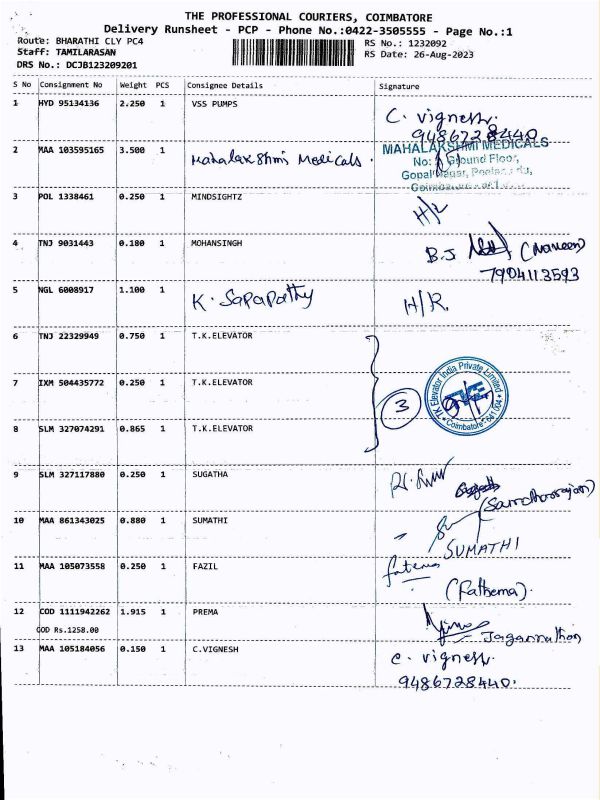 THE PROFESSIONAL COURIERS, COIMBATORE
Delivery Runsheet - PCP - Phone No.:0422-3505555 - Page No.:1
Route: BHARATHI CLY PC4
Staff: TAMILARASAN
DRS No.: DCJB123209201
RS No.: 1232092
RS Date: 26-Aug-2023
S No Consignment No Weight PCS Consignee Details Signature
1 HYD 95134136 2.250 1 VSS PUMPS C. vignesh.
9486728440
2 MAA 103595165 3.500 1 Mahalakshmi Medicals.
MAHALAKSHMI MEDICALS
Ground Floor,
3 POL 1338461 0.250 1 MINDSIGHTZ
4 TNJ 9031443 0.180 1 MOHANSINGH B.J (Naveen)
7904113593
5 NGL 6008917 1.100 1 K. Sapapathy H/R.
6 TNJ 22329949 0.750 1 T.K.ELEVATOR
7 IXM 504435772 0.250 1 T.K.ELEVATOR 3
TK Elevator India Private Limited
Coimbatore
8 SLM 327074291 0.865 1 T.K.ELEVATOR
9 SLM 327117880 0.250 1 SUGATHA
10 MAA 861343025 0.880 1 SUMATHI
SUMATHI
11 MAA 105073558 0.250 1 FAZIL
(Fathema).
12 COD 1111942262 1.915 1 PREMA
COD Rs.1258.00 Jagannathan
13 MAA 105184056 0.150 1 C.VIGNESH C. vignesh.
9486728440.